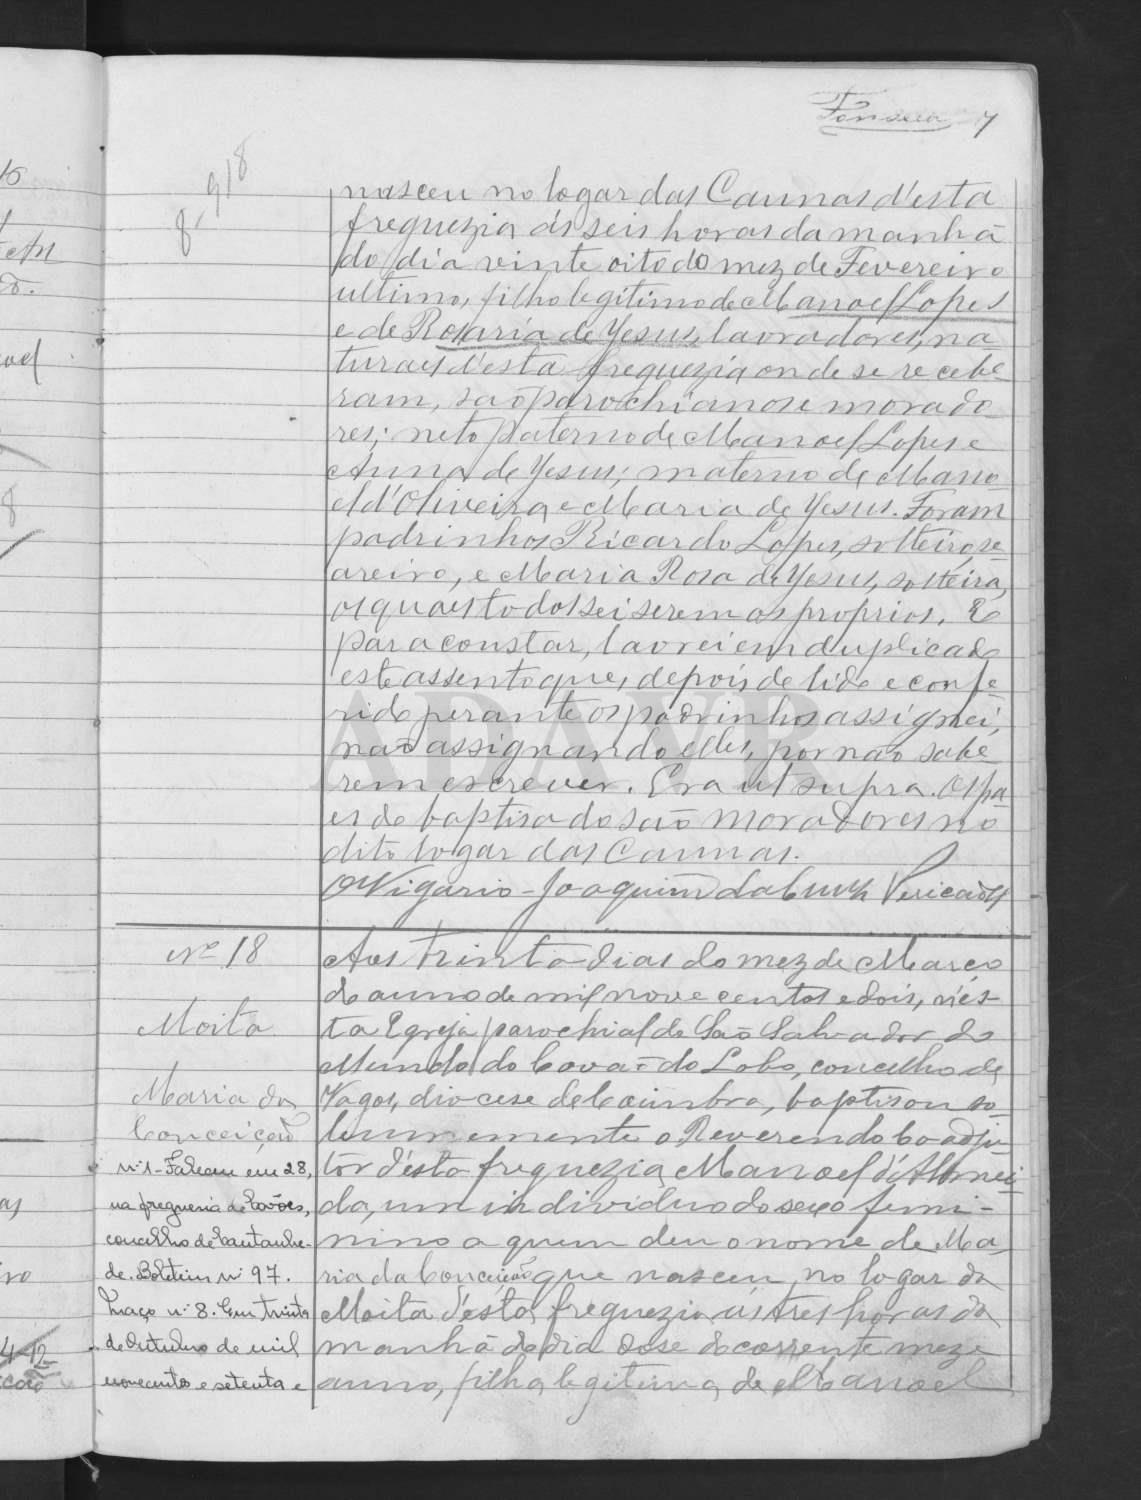 Fonseca 7
8-918
nasceu no logar das Cannas d'esta
freguezia ás seis horas da manhã
do dia vinte oito do mez de Fevereiro
ultimo, filho legitimo de Manoel Lopes
e de Rosaria de Jesus, lavradores, na-
turaes d'esta freguezia onde se recebe-
ram, são parochianos e morado-
res; neto paterno de Manoel Lopes e
Anna de Jesus; materno de Mano-
el d'Oliveira e Maria de Jesus. Foram
padrinhos Ricardo Lopes, solteiro, se-
areiro, e Maria Rosa de Jesus, solteira,
os quaes todos sei serem os proprios. E
para constar, lavrei em duplicado
este assento que, depois de lido e confe-
rido perante os padrinhos assignei,
não assignando elles, por não sabe-
rem escrever. Era ut supra. Os pa-
es do baptisado são moradores no
dito logar das Cannas.
O Vigario - Joaquim da Cruz Pericão
Nº 18
Moita
Maria da
Conceição
Nº 1 - Faleceu em 28,
na freguesia de Covões,
concelho de Cantanhe-
de. Boletim nº 97.
Maço nº 8. Em trinta
de Outubro de mil
novecentos e setenta e
Aos trinta dias do mez de Março
do anno de mil nove centos e dois, n'es-
ta Egreja parochial de São Salvador do
Mundo do Covão do Lobo, concelho de
Vagos, diocese de Coimbra, baptisou so-
lemnemente o Reverendo Coadju-
tor d'esta freguezia Manoel d'Almei-
da, um individuo do sexo femi-
nino a quem deu o nome de Ma-
ria da Conceição que nasceu no logar da
Moita d'esta freguezia ás tres horas da
manhã do dia dose do corrente mez e
anno, filha legitima de Manoel
ADAVR